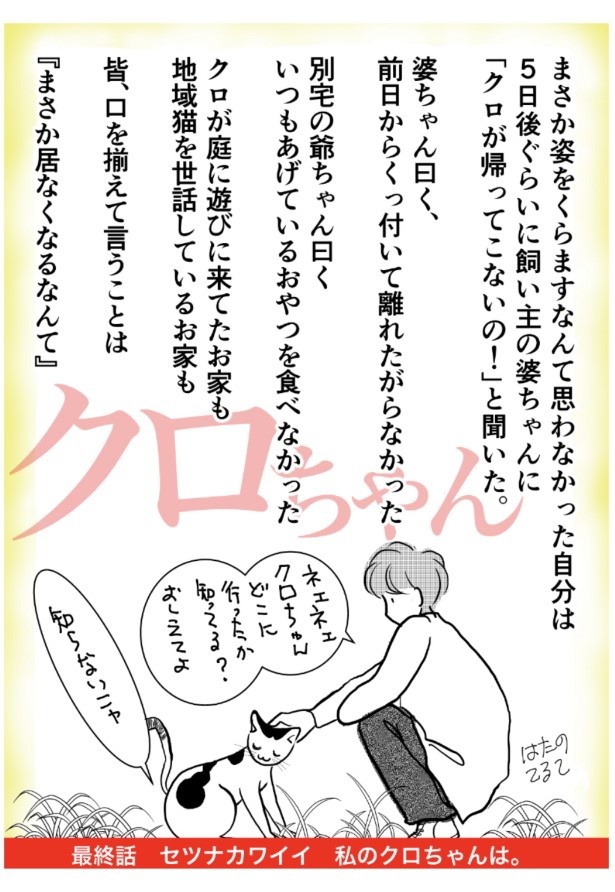 まさか姿をくらますなんて思わなかった自分は
５日後ぐらいに飼い主の婆ちゃんに
「クロが帰ってこないの！」と聞いた。
婆ちゃん曰く、
前日からくっ付いて離れたがらなかった
別宅の爺ちゃん曰く
いつもあげているおやつを食べなかった
クロが庭に遊びに来てたお家も
地域猫を世話しているお家も
皆、口を揃えて言うことは
『まさか居なくなるなんて』
クロちゃん
ネェネェ
クロちゃん
どこに
行ったか
知ってる？
おしえてよ
知らないニャ
はたの
てるて
最終話　セツナカワイイ　私のクロちゃんは。